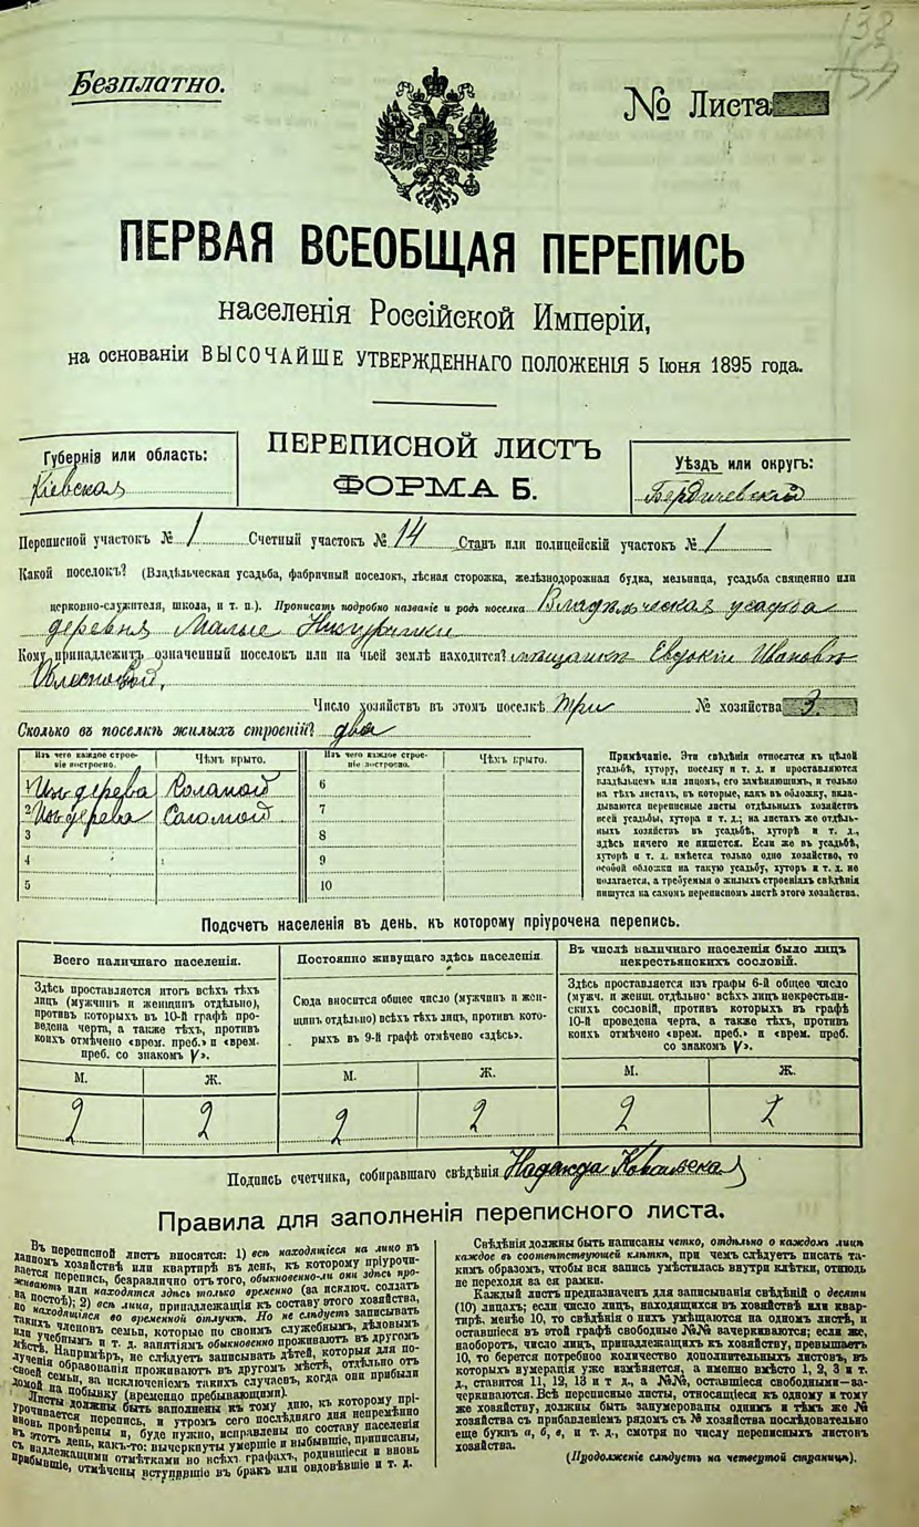 138
157
Безплатно.
№ Листа
ПЕРВАЯ ВСЕОБЩАЯ ПЕРЕПИСЬ
населенія Россійской Имперіи,
на основаніи ВЫСОЧАЙШЕ УТВЕРЖДЕННАГО ПОЛОЖЕНІЯ 5 Іюня 1895 года.
Губернія или область:
Кіевская
ПЕРЕПИСНОЙ ЛИСТЪ
ФОРМА Б.
Уѣздъ или округъ:
Бердичевскій
Переписной участокъ № 1 Счетный участокъ № 14 Станъ или полицейскій участокъ № 1
Какой поселокъ? (Владѣльческая усадьба, фабричный поселокъ, лѣсная сторожка, желѣзнодорожная будка, мельница, усадьба священно или
церковно-служителя, школа, и т. п.). Прописать подробно названіе и родъ поселка Владѣльческая усадьба
деревня Малые
Кому принадлежитъ означенный поселокъ или на чьей землѣ находится? мѣщанки Евдокіи Ивановн
Число хозяйствъ въ этомъ поселкѣ три № хозяйства 3.
Сколько въ поселкѣ жилыхъ строеній? два
Изъ чего каждое строеніе построено. Чѣмъ крыто. Изъ чего каждое строеніе построено. Чѣмъ крыто.
1 Изъ дерева Соломой 6
2 Изъ дерева Соломой. 7
3 8
4 9
5 10
Примѣчаніе. Эти свѣдѣнія относятся къ цѣлой
усадьбѣ, хутору, поселку и т. д. и проставляются
владѣльцемъ или лицомъ, его замѣняющимъ, и только
на тѣхъ листахъ, въ которые, какъ въ обложку, вкла-
дываются переписные листы отдѣльныхъ хозяйствъ
всей усадьбы, хутора и т. д.; на листахъ же отдѣль-
ныхъ хозяйствъ въ усадьбѣ, хуторѣ и т. д.,
здѣсь ничего не пишется. Если же въ усадьбѣ,
хуторѣ и т. д. имѣется только одно хозяйство, то
особой обложки на такую усадьбу, хуторъ и т. д. не
полагается, а требуемыя о жилыхъ строеніяхъ свѣдѣнія
пишутся на самомъ переписномъ листѣ этого хозяйства.
Подсчетъ населенія въ день, къ которому пріурочена перепись.
Всего наличнаго населенія.
Здѣсь проставляется итогъ всѣхъ тѣхъ
лицъ (мужчинъ и женщинъ отдѣльно),
противъ которыхъ въ 10-й графѣ про-
ведена черта, а также тѣхъ, противъ
коихъ отмѣчено «врем. преб.» и «врем.
преб. со знакомъ V».
М. Ж.
2 2
Постоянно живущаго здѣсь населенія.
Сюда вносится общее число (мужчинъ и жен-
щинъ отдѣльно) всѣхъ тѣхъ лицъ, противъ кото-
рыхъ въ 9-й графѣ отмѣчено «здѣсь».
М. Ж.
2 2
Въ числѣ наличнаго населенія было лицъ
некрестьянскихъ сословій.
Здѣсь проставляется изъ графы 6-й общее число
(мужч. и женщ. отдѣльно) всѣхъ лицъ некрестьян-
скихъ сословій, противъ которыхъ въ графѣ
10-й проведена черта, а также тѣхъ, противъ
коихъ отмѣчено «врем. преб.» и «врем. преб.
со знакомъ V».
М. Ж.
2 2
Подпись счетчика, собиравшаго свѣдѣнія Надежда
Правила для заполненія переписного листа.
Въ переписной листъ вносятся: 1) всѣ находящіеся на лицо въ
данномъ хозяйствѣ или квартирѣ въ день, къ которому пріурочи-
вается перепись, безразлично отъ того, обыкновенно-ли они здѣсь про-
живаютъ или находятся здѣсь только временно (за исключ. солдатъ
на постоѣ); 2) всѣ лица, принадлежащія къ составу этого хозяйства,
но находящіяся во временной отлучкѣ. Но не слѣдуетъ записывать
такихъ членовъ семьи, которые по своимъ служебнымъ, дѣловымъ
или учебнымъ и т. д. занятіямъ обыкновенно проживаютъ въ другомъ
мѣстѣ. Напримѣръ, не слѣдуетъ записывать дѣтей, которыя для по-
лученія образованія проживаютъ въ другомъ мѣстѣ, отдѣльно отъ
своей семьи, за исключеніемъ такихъ случаевъ, когда они прибыли
домой на побывку (временно пребывающими).
Листы должны быть заполнены къ тому дню, къ которому прі-
урочивается перепись, и утромъ сего послѣдняго дня непремѣнно
вновь провѣрены и, буде нужно, исправлены по составу населенія
въ этотъ день, какъ-то: вычеркнуты умершіе и выбывшіе, приписаны,
съ надлежащими отмѣтками во всѣхъ графахъ, родившіеся и вновь
прибывшіе, отмѣчены вступившіе въ бракъ или овдовѣвшіе и т. д.
Свѣдѣнія должны быть написаны четко, отдѣльно о каждомъ лицѣ
каждое въ соотвѣтствующей клѣткѣ, при чемъ слѣдуетъ писать та-
кимъ образомъ, чтобы вся запись умѣстилась внутри клѣтки, отнюдь
не переходя за ея рамки.
Каждый листъ предназначенъ для записыванія свѣдѣній о десяти
(10) лицахъ; если число лицъ, находящихся въ хозяйствѣ или квар-
тирѣ, менѣе 10, то свѣдѣнія о нихъ умѣщаются на одномъ листѣ, и
оставшіеся въ этой графѣ свободные №№ зачеркиваются; если же,
наоборотъ, число лицъ, принадлежащихъ къ хозяйству, превышаетъ
10, то берется потребное количество дополнительныхъ листовъ, въ
которыхъ нумерація уже измѣняется, а именно вмѣсто 1, 2, 3 и т.
д., ставится 11, 12, 13 и т д., а №№, оставшіеся свободными—за-
черкиваются. Всѣ переписные листы, относящіеся къ одному и тому
же хозяйству, должны быть занумерованы однимъ и тѣмъ же №
хозяйства съ прибавленіемъ рядомъ съ № хозяйства послѣдовательно
еще буквъ а, б, в, и т. д., смотря по числу переписныхъ листовъ
хозяйства.
(Продолженіе слѣдуетъ на четвертой страницѣ).